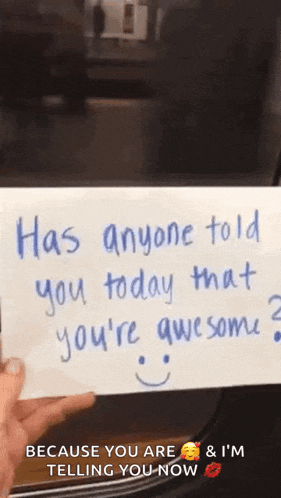 Has anyone told
you today that
you're awesome?
BECAUSE YOU ARE 🥰 & I'M
TELLING YOU NOW 💋